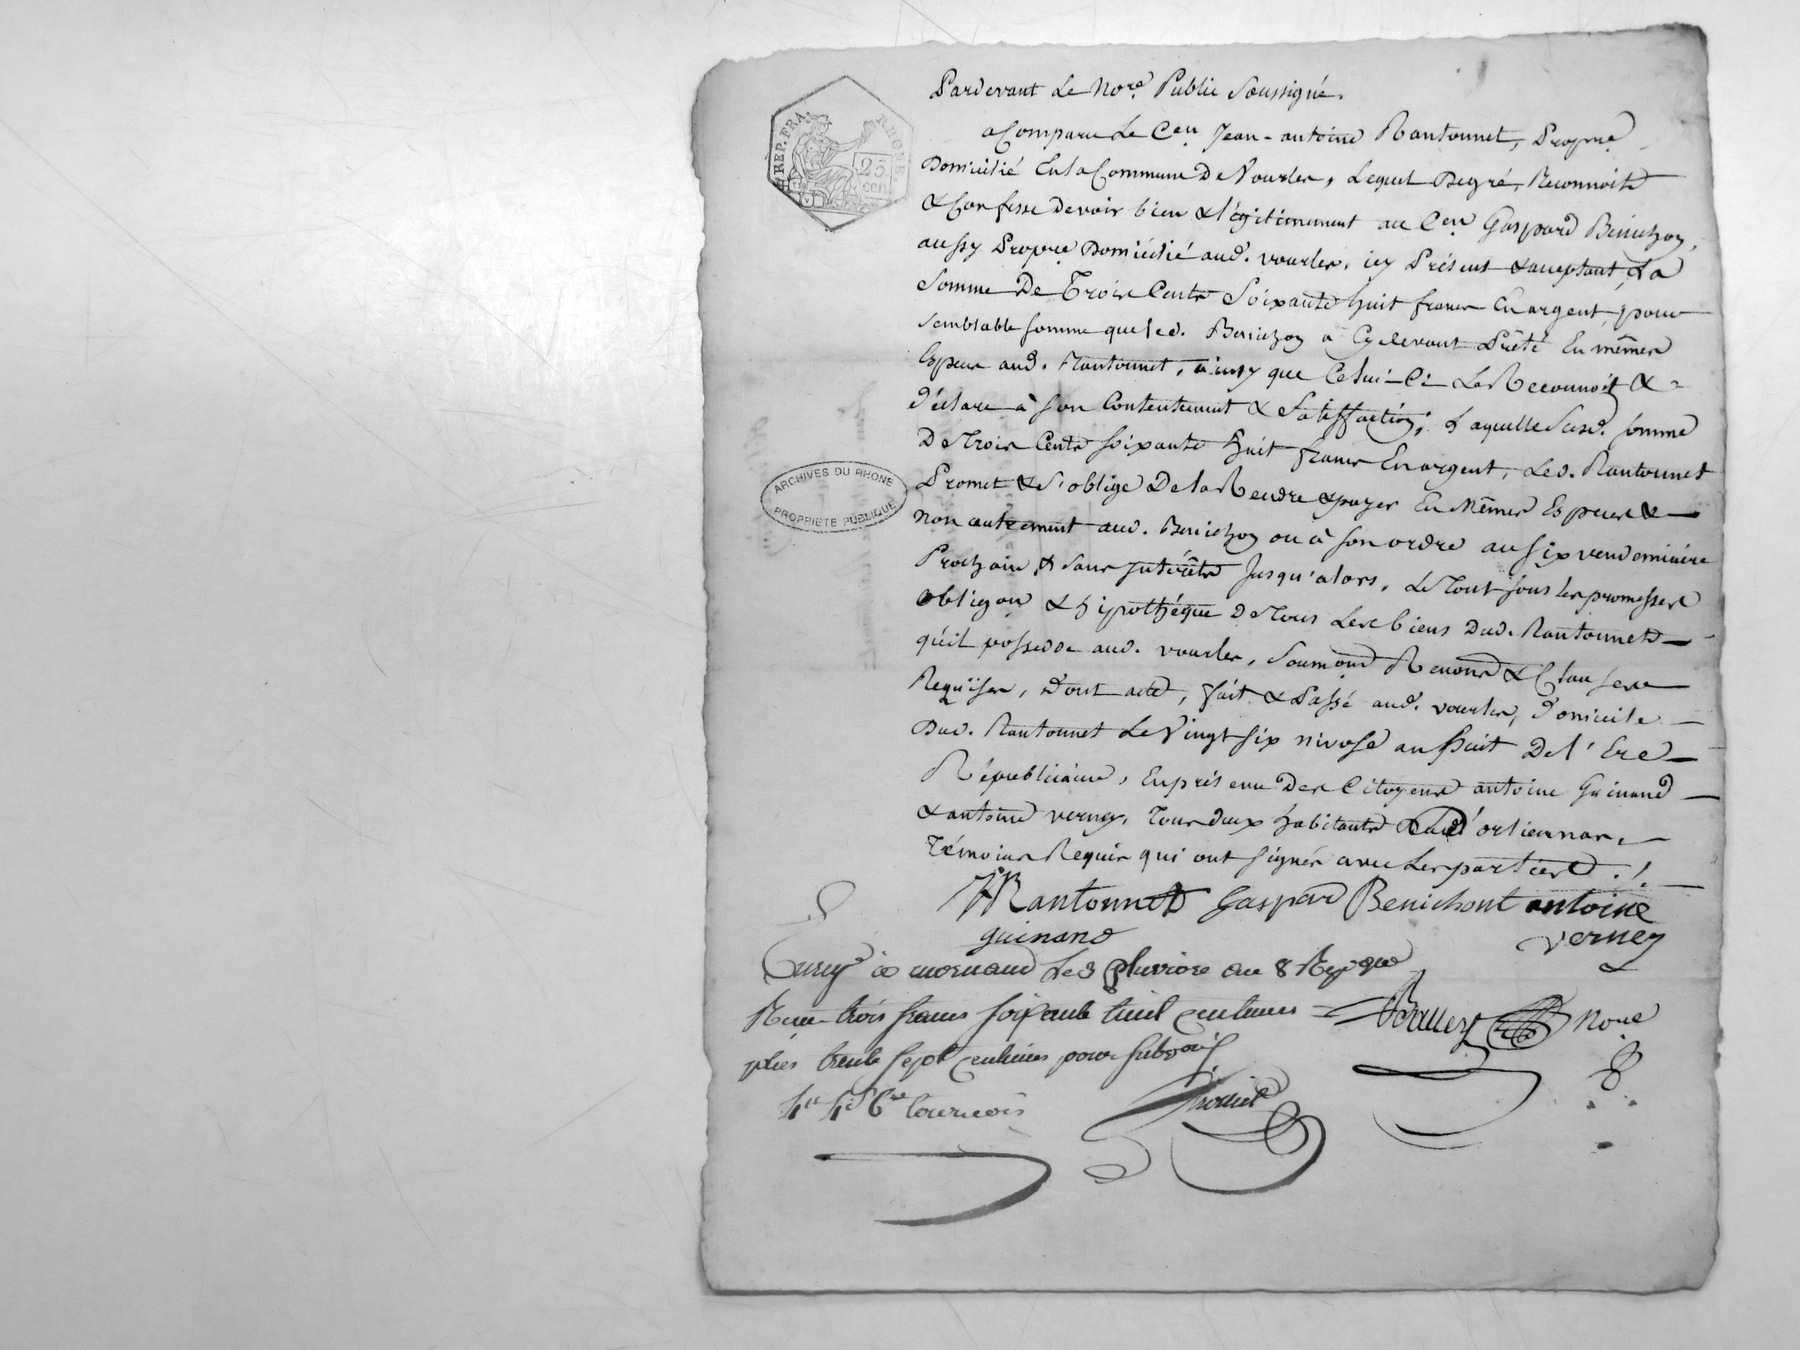 REP. FRA. RHONE
25 CEN.
Pardevant Le No.re Public Soussigné.
a Comparu Le C.en Jean-antoine Rantonnet, Propre.
Domicilié En la Commune De Vourles, Lequel De gré, Reconnoit
& Confesse Devoir bien & légitimement au C.en Gaspard Benichon,
aussy Propre. Domicilié aud. vourles, icy Présent & acceptant, La
Somme De Trois Cents Soixante huit francs En argent, pour
semblable somme que led. Benichon a Cydevant Prêté En mêmes
Especes aud. Rantonnet, ainsy que Celui-Ci Le Reconnoit &
déclare à son Contentement & Satisfaction; Laquelle susd. somme
De Trois Cents soixante huit francs En argent, Led. Rantonnet
Promet & S'oblige De la Rendre & payer En Mêmes Especes &
non autrement aud. Benichon ou à son ordre au six vendemiaire
Prochain, & sans Intérêts Jusqu'alors, Le Tout sous les promesses
obligon & hipothéque De Tous Les biens Dud. Rantonnet
qu'il possede aud. vourles, Soumond Renond & Clauses
Requises, dont acte, fait & Passé aud. vourles, domicile
Dud. Rantonnet Le Vingt six nivose an huit De l'Ere
Républicaine, En présence Des Citoyens antoine Guinand
& antoine verney, Tous deux habitants d'orlienas,
Témoins Requis qui ont signés avec Les parties.
ARCHIVES DU RHONE
PROPRIETE PUBLIQUE
JA Rantonnet Gaspard Benichont antoine
guinand verney
Enreg.é à mornand Le 3 pluviose an 8
Reçu trois francs soixante huit centimes
plus trente sept centimes pour subvon
No.re
4# 4s 6 tournois